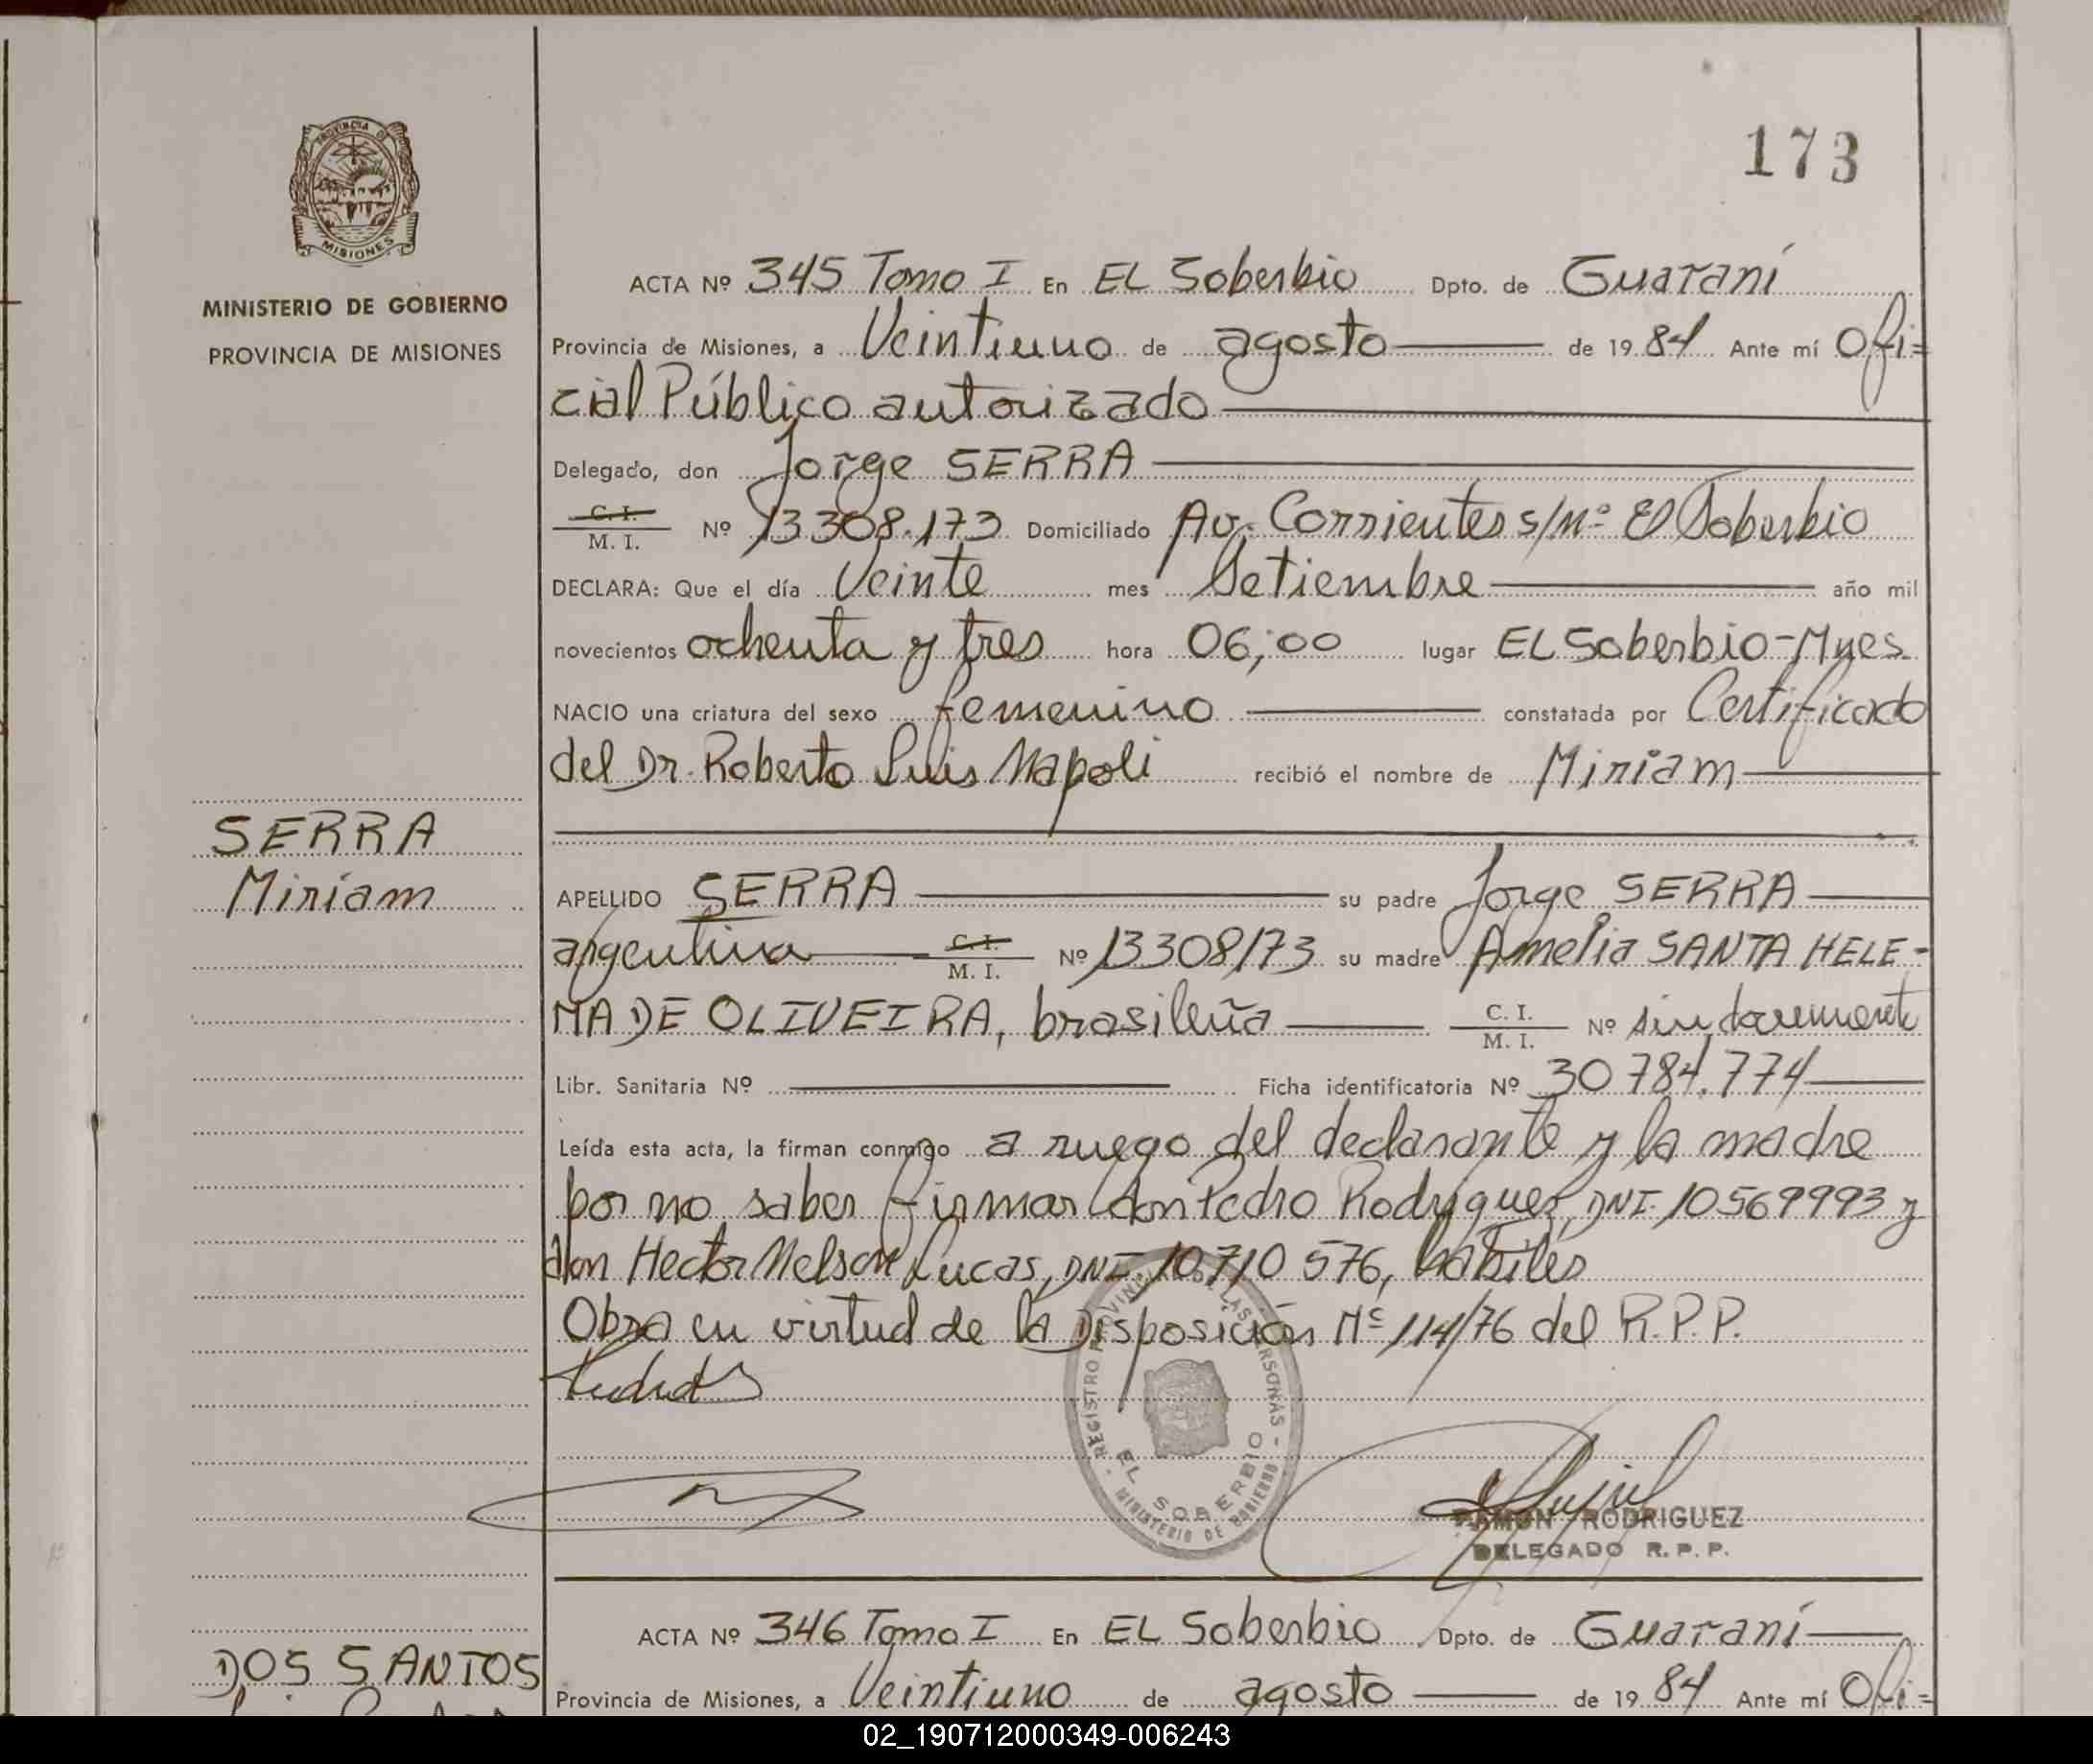 173
PROVINCIA DE
MISIONES
MINISTERIO DE GOBIERNO
PROVINCIA DE MISIONES
SERRA
Miriam
ACTA Nº 345 Tomo I En EL Soberbio Dpto. de Guaraní
Provincia de Misiones, a Veintiuno de agosto de 1984 Ante mí Ofi=
cial Público autorizado
Delegado, don Jorge SERRA
C. I. M. I. Nº 13308.173 Domiciliado Av. Corrientes s/nº El Soberbio
DECLARA: Que el día Veinte mes Setiembre año mil
novecientos ochenta y tres hora 06,00 lugar EL Soberbio-Mnes
NACIO una criatura del sexo femenino constatada por Certificado
del Dr. Roberto Luis Napoli recibió el nombre de Miriam
APELLIDO SERRA su padre Jorge SERRA
argentina C. I. M. I. Nº 13308173 su madre Amelia SANTA HELE-
NA DE OLIVEIRA, brasileña C. I. M. I. Nº sin
Libr. Sanitaria Nº Ficha identificatoria Nº 30784.774
Leída esta acta, la firman conmigo a ruego del declarante y la madre
por no saber firmar don Pedro Rodriguez, DNI. 10569993 y
don Hector Nelson Lucas, DNI. 10710576, habiles
Obra en virtud de la Disposición Nº 114/76 del R.P.P.
REGISTRO PROVINCIAL DE LAS PERSONAS
EL SOBERBIO
MINISTERIO DE GOBIERNO
RAMON RODRIGUEZ
DELEGADO R. P. P.
DOS SANTOS
ACTA Nº 346 Tomo I En EL Soberbio Dpto. de Guaraní
Provincia de Misiones, a Veintiuno de agosto de 1984 Ante mí Ofi=
02_190712000349-006243